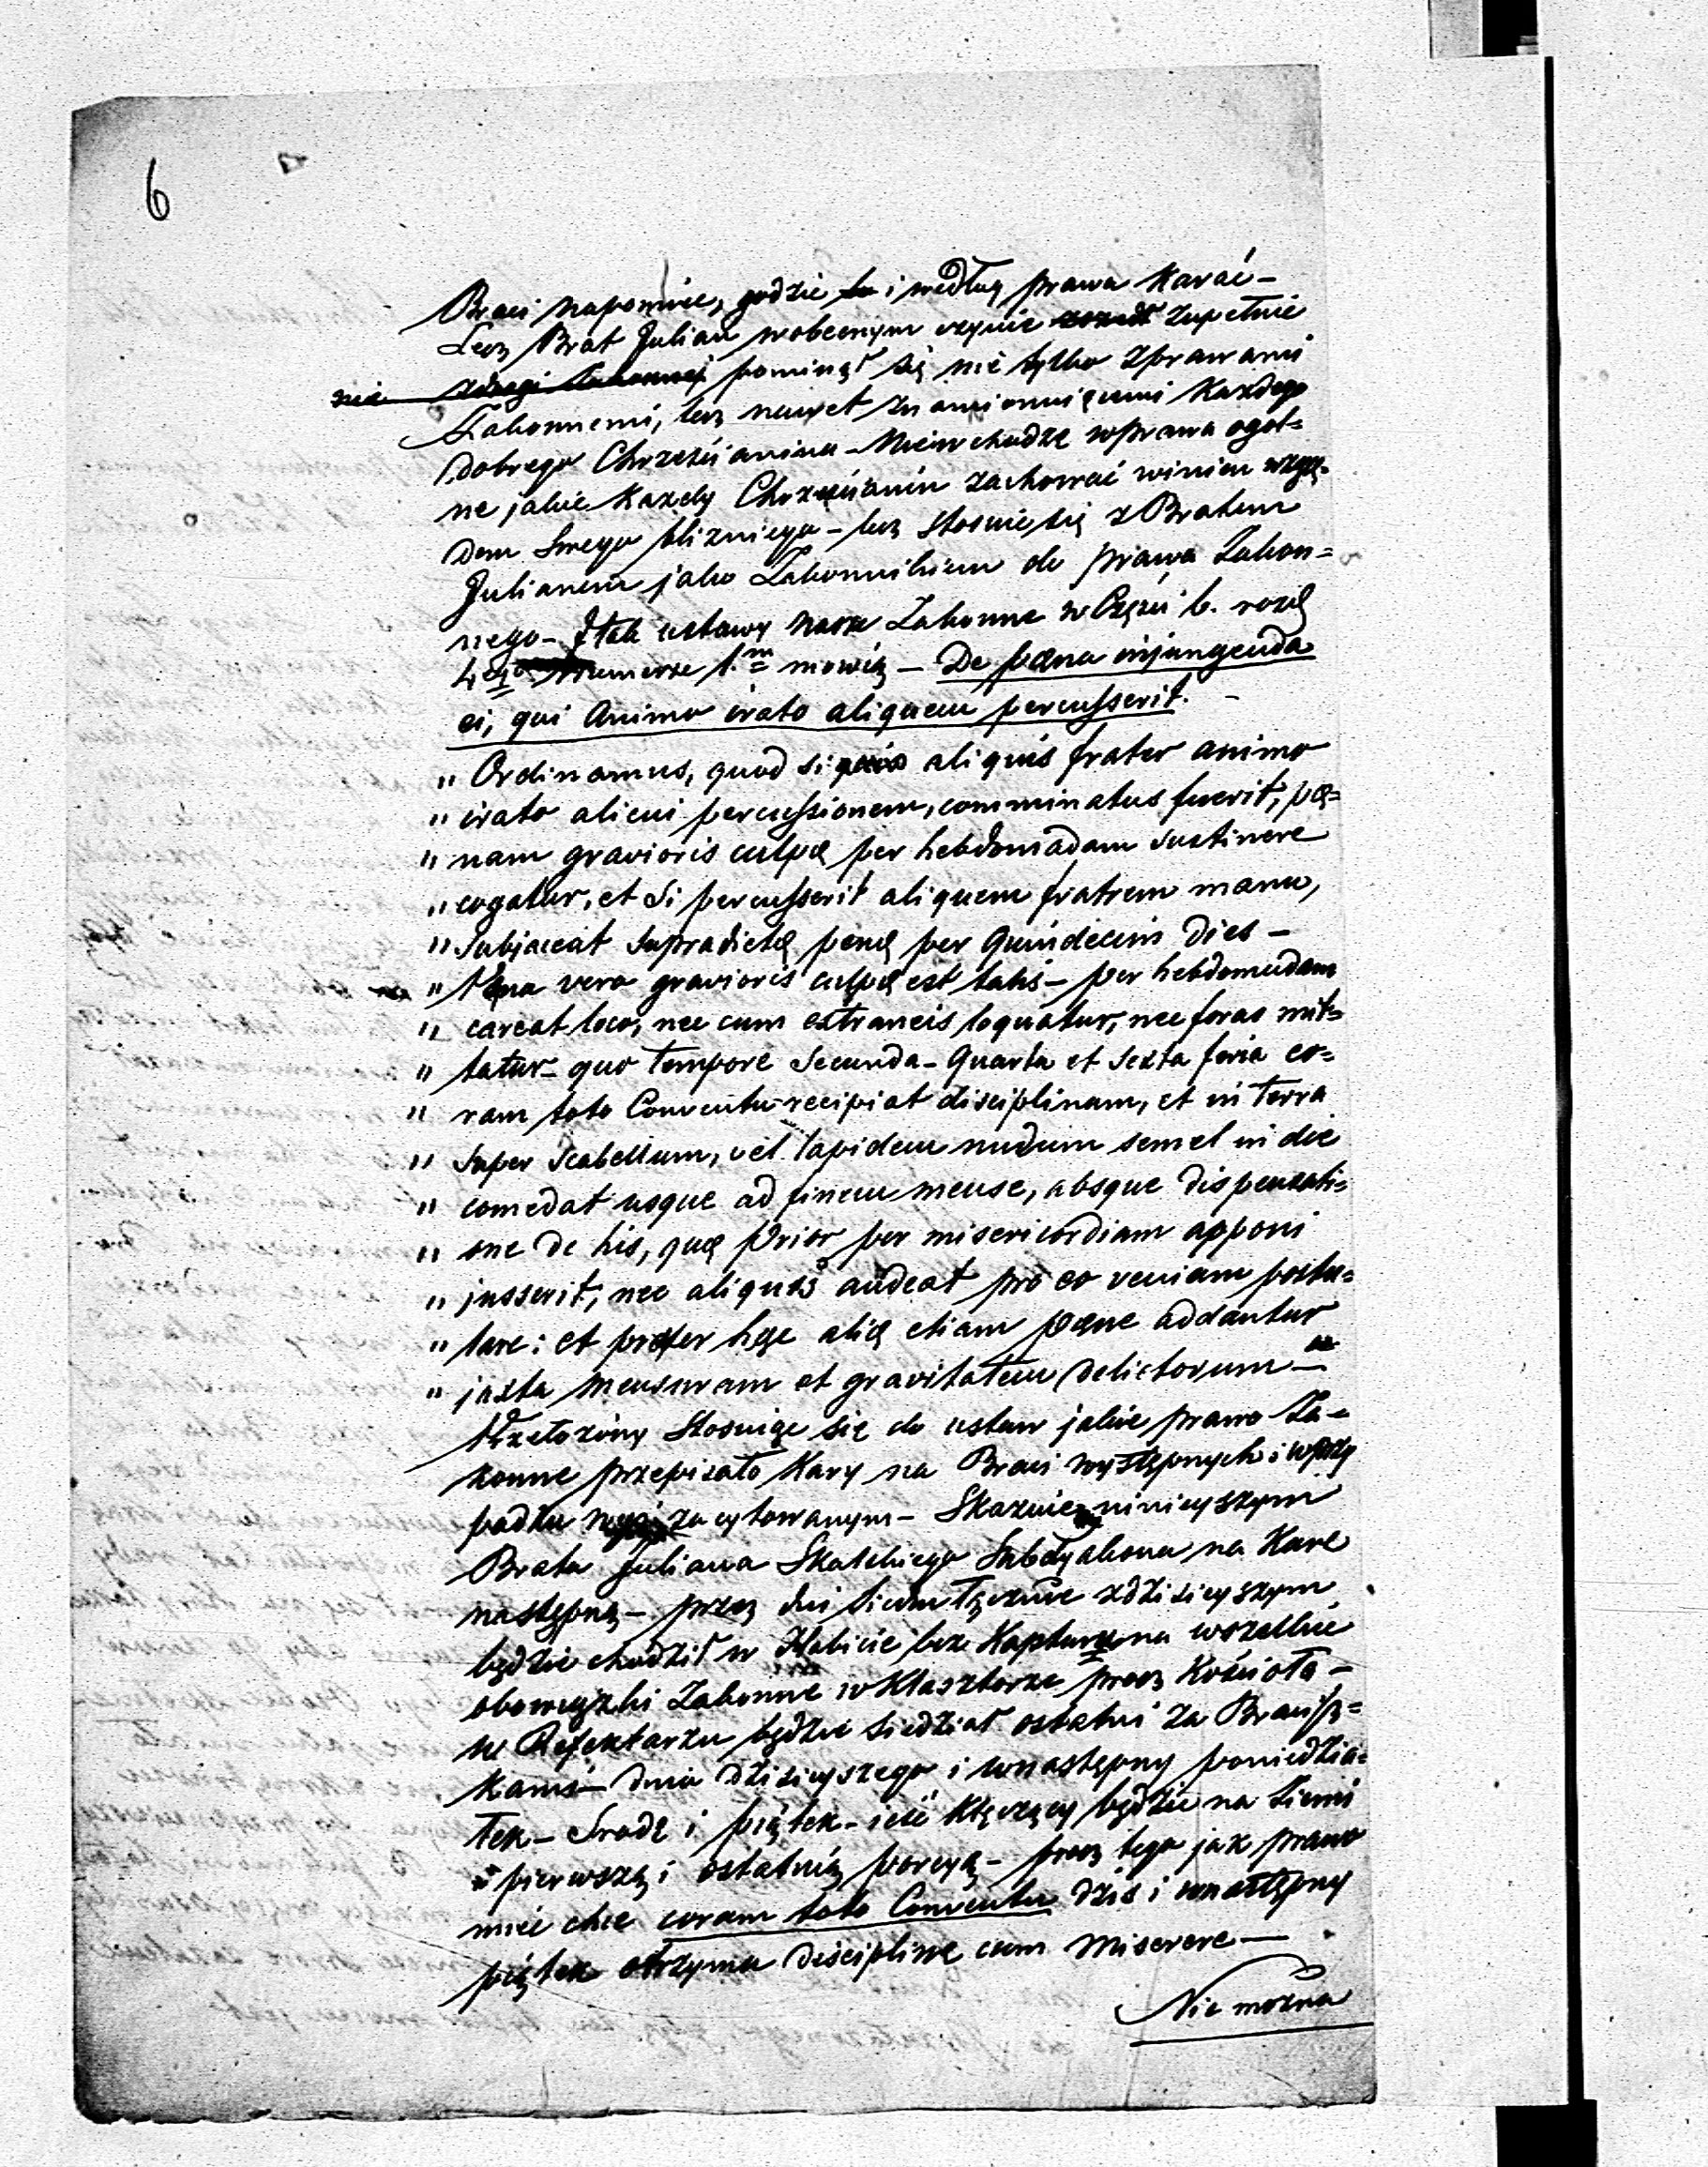 6
Braci napomnieć, godzie to i według prawa Karać –
Lecz Brat Julian wobecnym czynie zszedł zupełnie
nie z drogi Zakonnej pominął się nie tylko zprawami
Zakonnemi, lecz nawet znamionującemi Każdego
dobrego Chrześcianina – Niewchodzę wprawa ogól=
ne jakie Każdy Chrześcianin zachować winien wzglę=
dem Swego bliźniego – lecz stosuie się z Bratem
Julianem jako Zakonnikiem do prawa Zakon=
nego – I tak ustawy nasze Zakonne w Części 6. rozd
4tego Numerze 1.m mówią – De pæna injungenda
ei, qui Animo irato aliquem percusserit. –
" Ordinamus, quod si quis aliquis frater animo
" irato alicui percussionem, comminatus fuerit, pæ=
" nam gravioris culpæ per hebdomadam sustinere
" cogatur, et si percusserit aliquem fratrem manu,
" Subjaceat supradictæ penæ per quindecim dies –
" Pæna vero gravioris culpæ est talis – per hebdomadam
" careat loco, nec cum extraneis loquatur, nec foras mit=
" tatur – quo tempore Secunda – Quarta et Sexta feria co=
" ram toto Conventu recipiat disciplinam, et in terra
" super scabellum, vel lapidem nudum semel in die
" comedat usque ad finem mense, absque dispensati=
" one de his, quæ Prior per misericordiam apponi
" jusserit, nec aliquis audeat pro eo veniam postu=
" lare: et præter hæc aliæ etiam pænæ addantur
" juxta mensuram et gravitatem delictorum – "
Przełożony Stosując się do ustaw jakie prawo Za=
konne przepisało Kary na Braci występnych i wprzy
padku wyż zacytowanym – Skazuie niniejszym
Brata Juliana Skalskiego Subdyakona na Karę
następną – przez dni siedm łącznie zdzisiejszym
będzie chodził w Habicie bez Kaptura na wszelkie
obowiązki Zakonne w Klasztorze procz Kościoła –
w Refektarzu będzie siedział ostatni za Braciß=
kami – dnia dzisiejszego i wnastępny poniedzia=
łek – Srodę i piątek – ieść klęczący będzie na Ziemi
pierwszą i ostatnią porcyą – procz tego jak prawo
mieć chce coram toto Conventu dziś i wnastępny
piątek otrzyma disciplinę cum Miserere –
Nie można